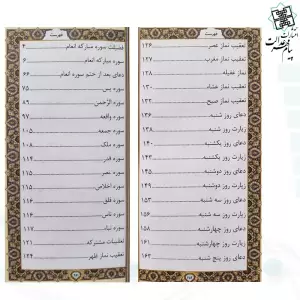 فهرست
فضیلت سوره مبارکه انعام ۴
سوره مبارکه انعام ۶
دعای بعد از ختم سوره انعام ۶۶
سوره یس ۷۵
سوره الرَّحْمن ۸۹
سوره واقعه ۹۷
سوره جمعه ۱۰۵
سوره ملک ۱۰۸
سوره قدر ۱۱۴
سوره نصر ۱۱۵
سوره اخلاص ۱۱۵
سوره فلق ۱۱۶
سوره ناس ۱۱۶
سوره نباء ۱۱۷
تعقیبات مشترکه ۱۲۱
تعقیب نماز ظهر ۱۲۴
فهرست
تعقیب نماز عصر ۱۲۶
تعقیب نماز مغرب ۱۲۷
نماز غفیله ۱۲۸
تعقیب نماز عشاء ۱۳۰
تعقیب نماز صبح ۱۳۲
دعای روز شنبه ۱۳۶
زیارت روز شنبه ۱۳۸
دعای روز یکشنبه ۱۴۰
زیارت روز یکشنبه ۱۴۳
دعای روز دوشنبه ۱۴۵
زیارت روز دوشنبه ۱۴۹
دعای روز سه شنبه ۱۵۳
زیارت روز سه شنبه ۱۵۶
دعای روز چهارشنبه ۱۵۸
زیارت روز چهارشنبه ۱۶۱
دعای روز پنج شنبه ۱۶۲